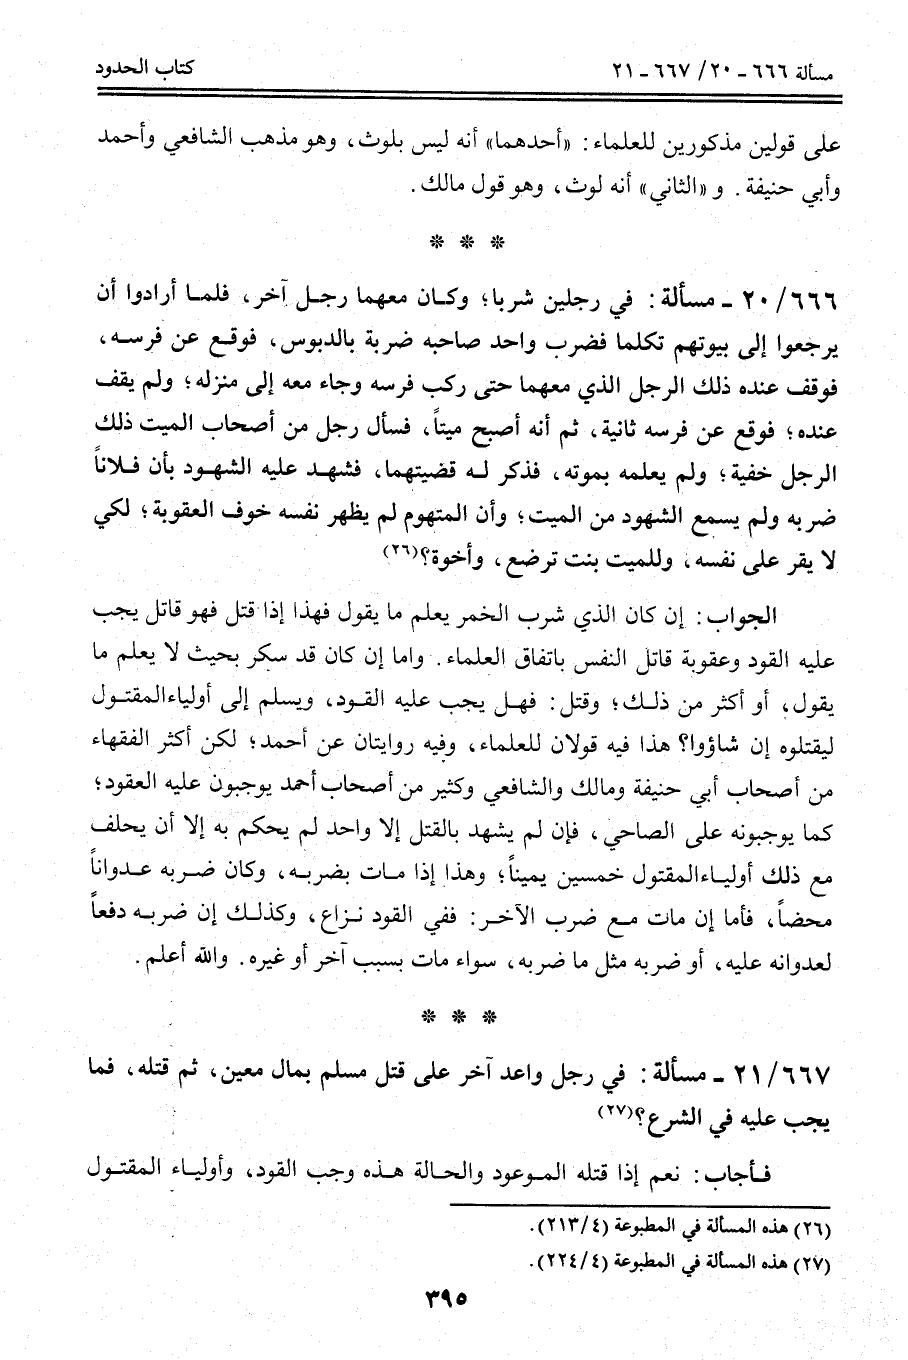 مسألة ٦٦٦ - ٢٠/ ٦٦٧ - ٢١
كتاب الحدود
على قولين مذكورين للعلماء: «أحدهما» أنه ليس بلوث، وهو مذهب الشافعي وأحمد
وأبي حنيفة. و «الثاني» أنه لوث، وهو قول مالك.
* * *
٢٠/٦٦٦ ـ مسألة: في رجلين شربا؛ وكـان معهما رجـل آخر، فلمـا أرادوا أن
يرجعوا إلى بيوتهم تكلما فضرب واحد صاحبه ضربة بالدبوس، فوقـع عن فرسـه،
فوقف عنده ذلك الرجل الذي معهما حتى ركب فرسه وجاء معه إلى منزله؛ ولم يقف
عنده؛ فوقع عن فرسه ثانية، ثم أنه أصبح ميتاً، فسأل رجل من أصحاب الميت ذلك
الرجل خفية؛ ولم يعلمه بموته، فذكر لـه قضيتهما، فشهـد عليه الشهـود بأن فـلاناً
ضربه ولم يسمع الشهود من الميت؛ وأن المتهوم لم يظهر نفسه خوف العقوبة؛ لكي
لا يقر على نفسه، وللميت بنت ترضع، وأخوة؟(٢٦)
الجواب: إن كان الذي شرب الخمر يعلم ما يقول فهذا إذا قتل فهو قاتل يجب
عليه القود وعقوبة قاتل النفس باتفاق العلماء. واما إن كان قد سكر بحيث لا يعلم ما
يقول، أو أكثر من ذلـك؛ وقتل: فهـل يجب عليه القـود، ويسلم إلى أولياءالمقتـول
ليقتلوه إن شاؤوا؟ هذا فيه قولان للعلماء، وفيه روايتان عن أحمد؛ لكن أكثر الفقهاء
من أصحاب أبي حنيفة ومالك والشافعي وكثير من أصحاب أحمد يوجبون عليه العقود؛
كما يوجبونه على الصاحي، فإن لم يشهد بالقتل إلا واحد لم يحكم به إلا أن يحلف
مع ذلك أوليـاءالمقتول خمسين يميناً؛ وهذا إذا مـات بضربـه، وكان ضـربه عـدواناً
محضاً، فأما إن مات مـع ضرب الآخـر: ففي القود نـزاع، وكذلـك إن ضربـه دفعاً
لعدوانه عليه، أو ضربه مثل ما ضربه، سواء مات بسبب آخر أو غيره. والله أعلم.
* * *
٢١/٦٦٧ ـ مسألة: في رجل واعد آخر على قتل مسلم بمال معين، ثم قتله، فما
يجب عليه في الشرع؟(٢٧)
فـأجاب: نعم إذا قتله المـوعود والحـالة هـذه وجب القود، وأوليـاء المقتـول
(٢٦) هذه المسألة في المطبوعة (٢١٣/٤).
(٢٧) هذه المسألة في المطبوعة (٢٢٤/٤).
٣٩٥